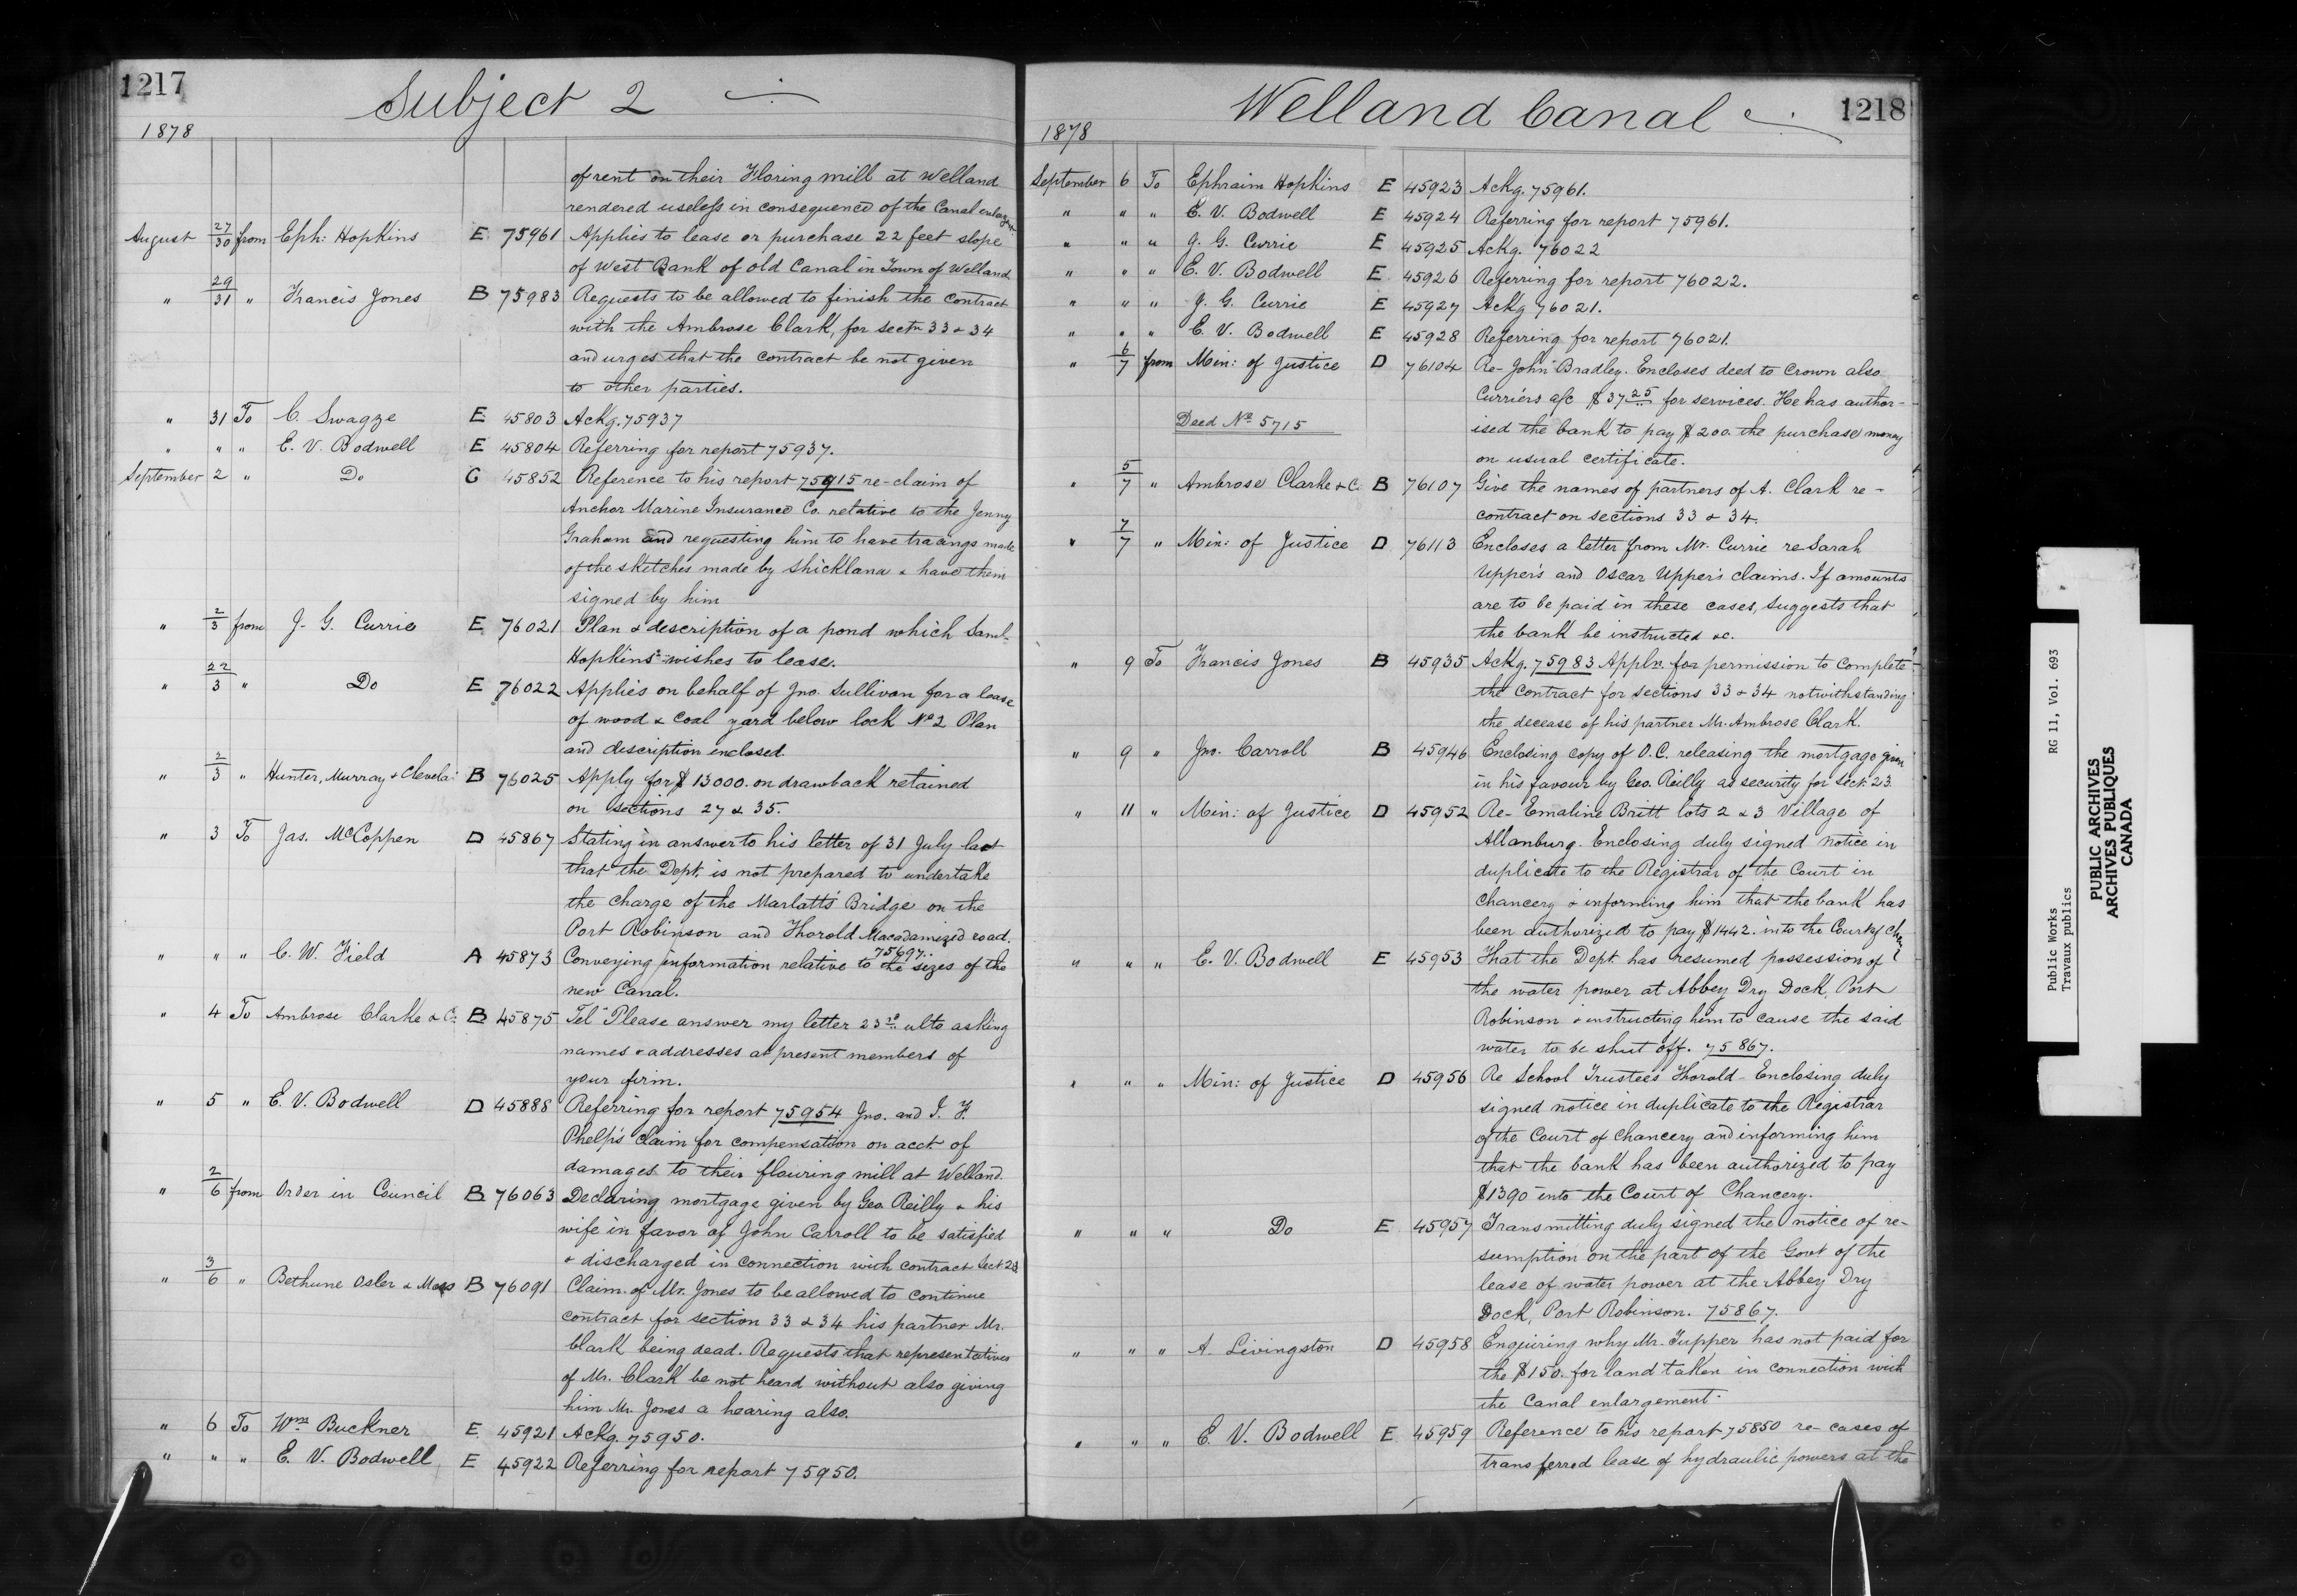 1217
Subject 2
1878
of rent on their Floring mill at Welland
rendered useless in consequence of the Canal enlargt.
August 27/30 from Eph: Hopkins E. 75961 Applies to lease or purchase 22 feet slope
of West Bank of old Canal in Town of Welland
" 29/31 " Francis Jones B 75983 Requests to be allowed to finish the contract
with the Ambrose Clark, for sectn 33 & 34
and urges that the contract be not given
to other parties.
" 31 To C. Swagze E 45803 Ackg. 75937
" " " E. V. Bodwell E 45804 Referring for report 75937.
September 2 " Do C 45852 Reference to his report 75915 re-claim of
Anchor Marine Insurance Co. relative to the Jenny
Graham and requesting him to have tracings made
of the sketches made by Shickluna & have them
signed by him
" 2/3 from J. G. Currie E. 76021 Plan & description of a pond which Saml.
Hopkins wishes to lease.
" 22/3 " Do E 76022 Applies on behalf of Jno. Sullivan for a lease
of wood & coal yard below lock No 2 Plan
and discription enclosed.
" 2/3 " Hunter, Murray & Clevela: B 76025 Apply for $ 13000. on drawback retained
on sections 27 & 35.
" 3 To Jas. McCoppen D 45867 Stating in answer to his letter of 31 July last
that the Dept. is not prepared to undertake
the charge of the Marlatt's Bridge on the
Port Robinson and Thorold Macadamized road.
75697..
" " " C. W. Field A 45873 Conveying information relative to the sizes of the
new Canal.
" 4 To Ambrose Clarke & C: B 45875 Tel "Please answer my letter 23rd ulto asking
names & addresses at present members of
your firm.
" 5 " E. V. Bodwell D 45888 Referring for report 75954 Jno. and I. F.
Phelp's claim for compensation on acct. of
damages to their flouring mill at Welland.
" 2/6 from Order in Council B 76063 Declaring mortgage given by Geo Reilly & his
wife in favor of John Carroll to be satisfied
& discharged in connection with contract Sect 23
" 3/6 " Bethune Osler & Moss B 76091 Claim of Mr. Jones to be allowed to continue
contract for section 33 & 34 his partner Mr.
Clark being dead. Requests that representatives
of Mr. Clark be not heard without also giving
him Mr. Jones a hearing also.
" 6 To Wm Buckner E. 45921 Ackg. 75950.
" " " E. V. Bodwell E 45922 Referring for report 75950.
Welland Canal
1218
1878
September 6 To Ephraim Hopkins E 45923 Ackg. 75961.
" " " E. V. Bodwell E 45924 Referring for report 75961.
" " " J. G. Currie E 45925 Ackg. 76022
" " " E. V. Bodwell E 45926 Referring for report 76022.
" " " J. G. Currie E 45927 Ackg 76021.
" " " E. V. Bodwell E 45928 Referring for report 76021.
" 6/7 from Min: of Justice D 76104 Re-John Bradley. Encloses deed to Crown also
Currier's a/c $ 37 25 for services. He has author-
Deed No 5715 ised the bank to pay $ 200. the purchase money
on usual certificate.
" 5/7 " Ambrose Clarke & C. B 76107 Give the names of partners of A. Clark re-
contract on sections 33 & 34.
" 7/7 " Min: of Justice D 76113 Encloses a letter from Mr. Currie re Sarah
Upper's and Oscar Upper's claims. If amounts
are to be paid in these cases, suggests that
the bank be instructed &c.
" 9 To Francis Jones B 45935 Ackg. 75983 Appln. for permission to complete
the contract for sections 33 & 34 notwithstanding
the decease of his partner Mr. Ambrose Clark.
" 9 " Jno. Carroll B 45946 Enclosing copy of O.C. releasing the mortgage given
in his favour by Geo. Reilly as security for sect. 23.
" 11 " Min: of Justice D 45952 Re-Emaline Britt lots 2 & 3 Village of
Allanburg. Enclosing duly signed notice in
duplicate to the Registrar of the Court in
Chancery & informing him that the bank has
been authorized to pay $ 1442. into the Court of Chan
" " " E. V. Bodwell E 45953 That the Dept. has resumed possession of
the water power at Abbey Dry Dock, Port
Robinson & instructing him to cause the said
water to be shut off. 75867.
" " " Min: of Justice D 45956 Re School Trustees Thorold-Enclosing duly
signed notice in duplicate to the Registrar
of the Court of Chancery and informing him
that the bank has been authorized to pay
$1390 into the Court of Chancery.
" " " Do E 45957 Transmitting duly signed the notice of re-
sumption on the part of the Govt of the
lease of water power at the Abbey Dry
Dock, Port Robinson. 75867.
" " " A. Livingston D 45958 Enquiring why Mr. Tupper has not paid for
the $150. for land taken in connection with
the Canal enlargement.
" " " E. V. Bodwell E. 45959 Reference to his report 75850 re-cases of
transferred lease of hydraulic powers at the
Public Works RG 11, Vol. 693
Travaux publics
PUBLIC ARCHIVES
ARCHIVES PUBLIQUES
CANADA